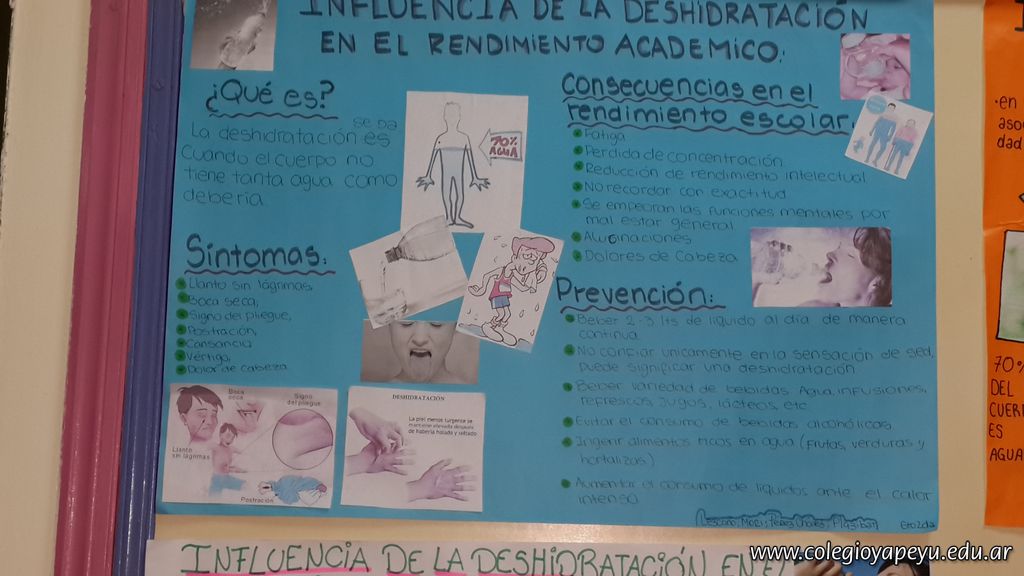 INFLUENCIA DE LA DESHIDRATACIÓN
EN EL RENDIMIENTO ACADEMICO:
¿Qué es?
se da
La deshidratación es
cuando el cuerpo no
tiene tanta agua como
deberia
70%
AGUA
Síntomas:
Llanto sin lágrimas,
Boca seca,
Signo del pliegue,
Postración,
Cansancio
Vértigo,
Dolor de cabeza
Boca
seca
Signo
del pliegue
Llanto
sin lágrimas
Postración
DESHIDRATACIÓN
La piel menos turgente se
mantiene elevada después
de haberla halado y soltado
Consecuencias en el
rendimiento escolar.
Fatiga
Perdida de concentración
Reducción de rendimiento intelectual
No recordar con exactitud
Se empeoran las funciones mentales por
mal estar general
Alucinaciones
Dolores de Cabeza
Prevención:
Beber 2-3 lts de líquido al día de manera
continua
No confiar unicamente en la sensación de sed,
puede significar una deshidratación
Beber variedad de bebidas. Agua, infusiones,
refrescos, jugos, lácteos, etc
Evitar el consumo de bebidas alcohólicas
Ingerir alimentos ricos en agua (frutas, verduras y
hortalizas)
Aumentar el consumo de líquidos ante el calor
intenso
6to 2da
INFLUENCIA DE LA DESHIDRATACIÓN EN EL
.en
aso
dad
70%
DEL
CUER
ES
AGUA
www.colegioyapeyu.edu.ar